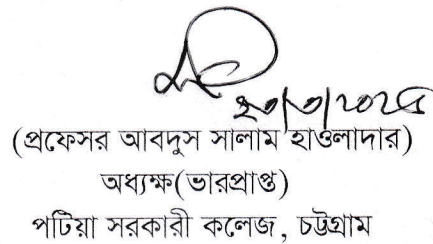 ২০/৩/২০২৪
(প্রফেসর আবদুস সালাম হাওলাদার)
অধ্যক্ষ(ভারপ্রাপ্ত)
পটিয়া সরকারী কলেজ, চট্টগ্রাম